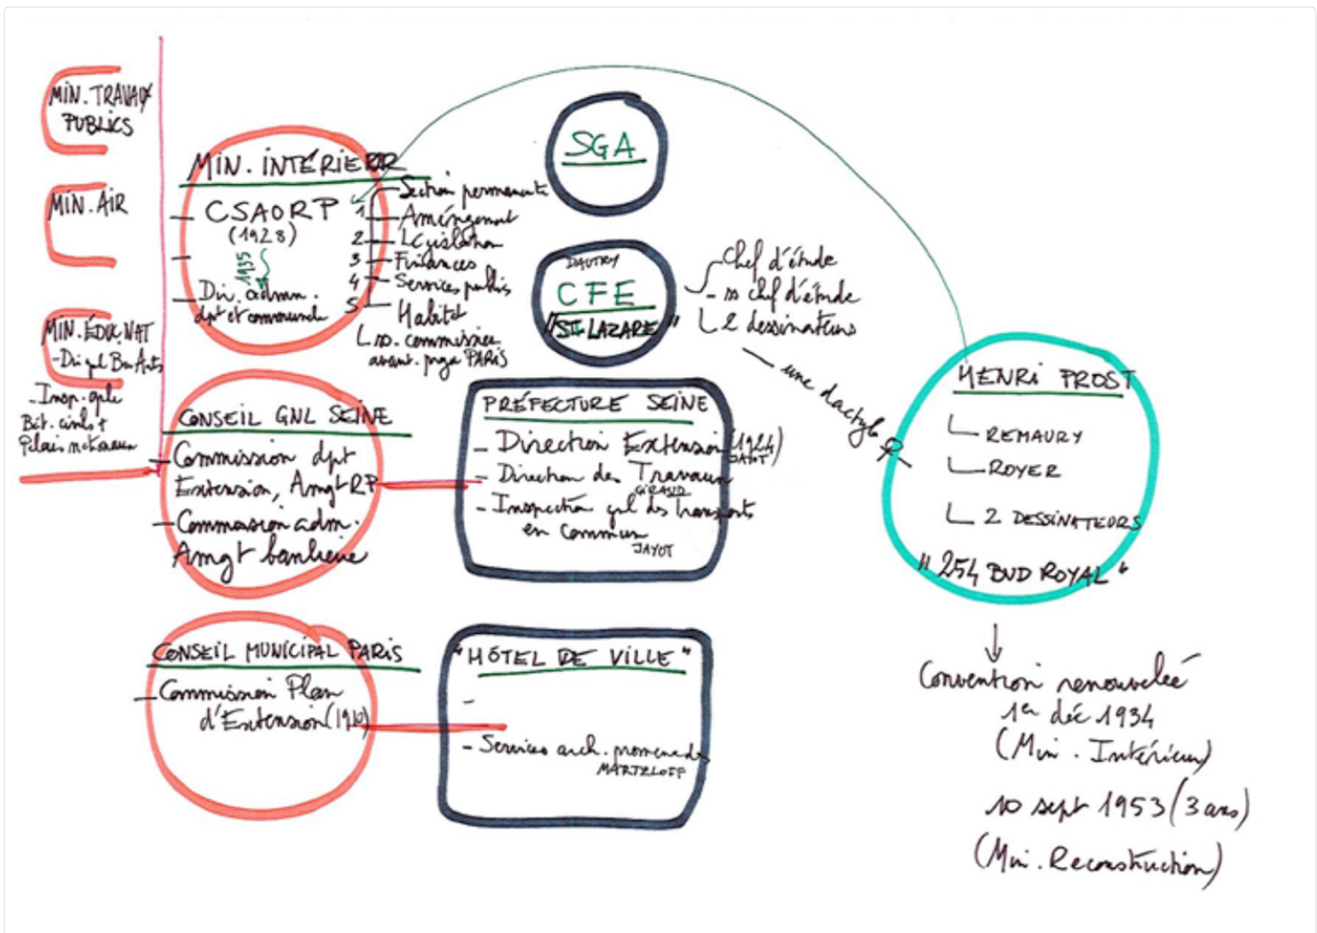 MIN. TRAVAUX
PUBLICS
MIN. AIR
MIN. ÉDUC. NAT
- Dir. gal Bx Arts
- Insp. gale
Bât. civils +
Palais nationaux
MIN. INTÉRIEUR
- CSAORP
(1928)
1935
- Dir. admn.
dpt et communale
Section permanente
1 Aménagement
2 Législation
3 Finances
4 Services publics
5 Habitat
ss. commission
avant. proj. PARIS
SGA
DAUTRY
CFE
"ST LAZARE"
Chef d'étude
- ss chef d'étude
2 dessinateurs
- une dactylo
CONSEIL GNL SEINE
- Commission dpt
Extension, Amgt RP
- Commission adm.
Amgt banlieue
PRÉFECTURE SEINE
- Direction Extension (1924)
JAYOT
- Direction des Travaux
GIRAUD
- Inspection gal des Transports
en Commun
JAYOT
CONSEIL MUNICIPAL PARIS
- Commission Plan
d'Extension (1910)
"HÔTEL DE VILLE"
-
- Services arch. promenades
MARTZLOFF
HENRI PROST
REMAURY
ROYER
2 DESSINATEURS
"254 BVD ROYAL"
Convention renouvelée
1er déc 1934
(Min. Intérieur)
10 sept 1953 (3 ans)
(Min. Reconstruction)